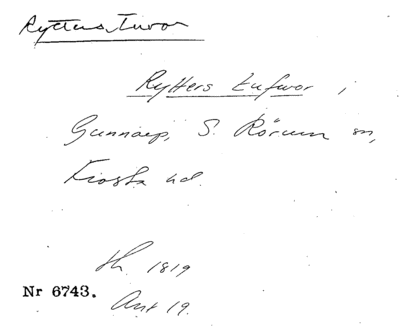 Ryttens tuvor
Rytters tufvor i
Gunnarp, S. Rörum sn,
Frosta hd.
1819
Nr 6743.
Ant 19.